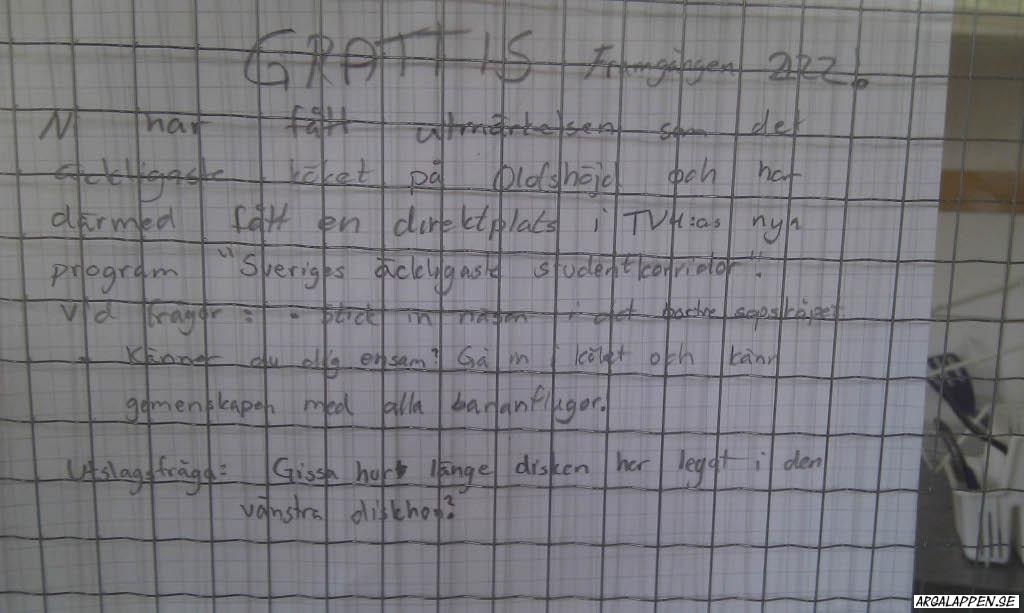 GRATTIS Framgången 222.
Ni har fått utmärkelsen som det
äckligaste köket på Olofshöjd och har
därmed fått en direktplats i TV4:as nya
program "Sveriges äckligaste studentkorridor".
Vid frågor: - stick in näsan i det bortre sopskåpet
- Känner du dig ensam? Gå in i köket och känn
gemenskapen med alla bananflugor.
Utslagsfråga: Gissa hur länge disken har leggt i den
vänstra diskhon?
ARGALAPPEN.SE